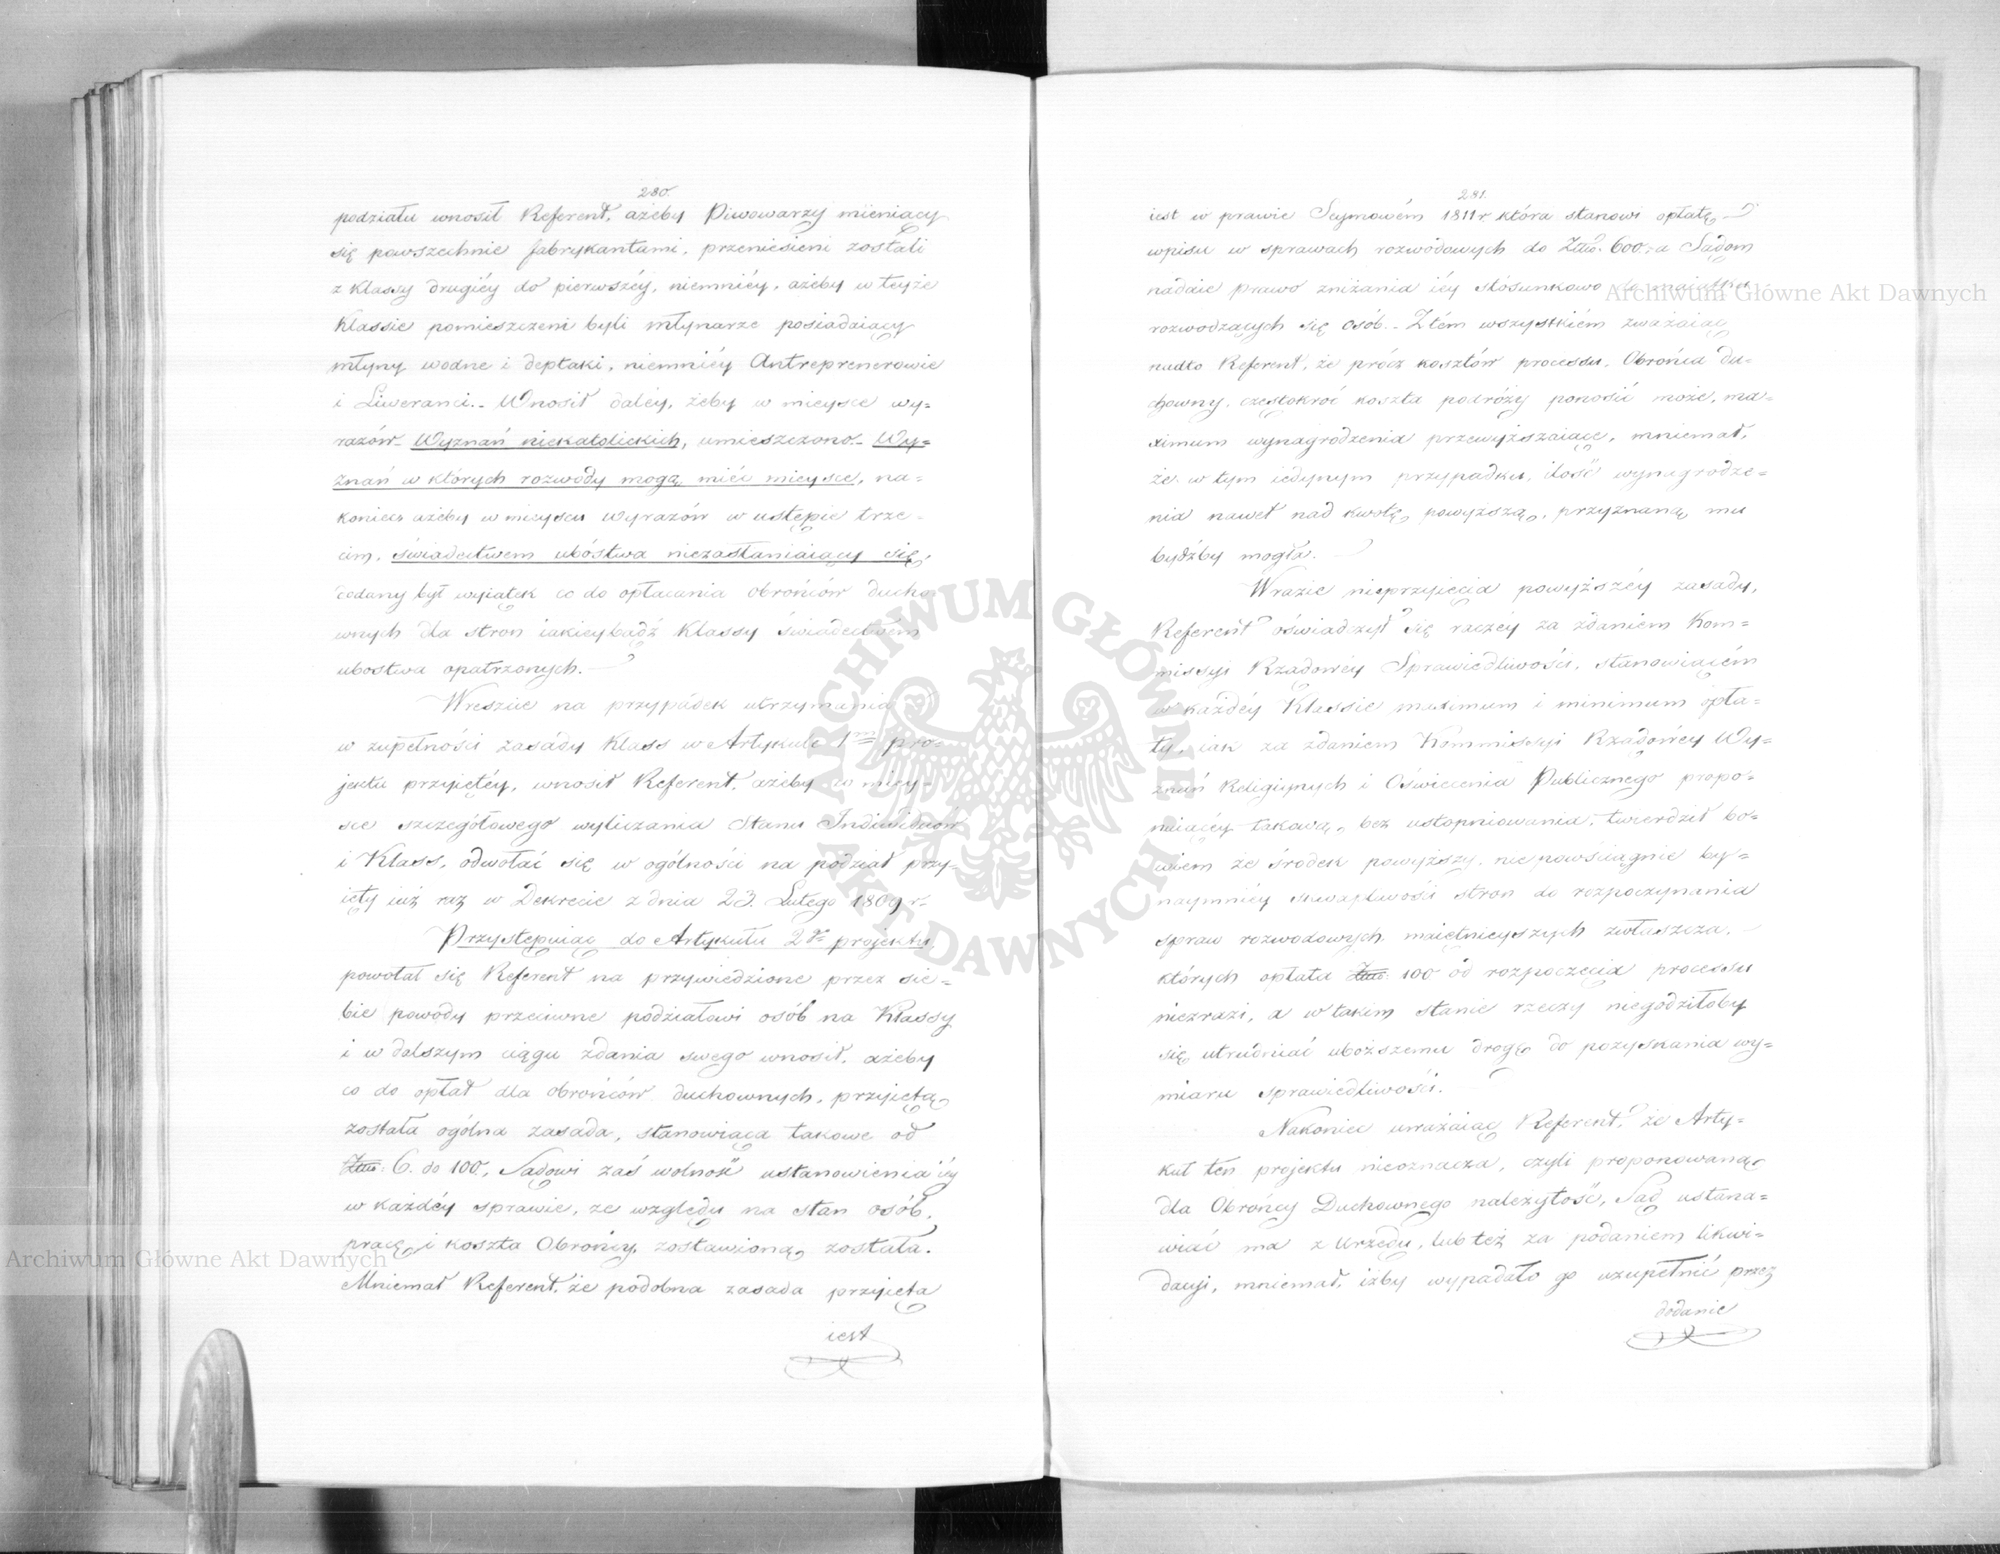 280.
podziału wnosił Referent, ażeby Piwowarzy mieniący
się powszechnie fabrykantami, przeniesieni zostali
z Klassy drugiéy do pierwszéy, niemniéy, ażeby w teyże
Klassie pomieszczeni byli młynarze posiadaiący
młyny wodne i deptaki, niemniéy Antreprenerowie
i Liweranci. – Wnosił daléy, żeby w mieysce wy=
razów – Wyznań niekatolickich, umieszczono – Wy=
znań w których rozwody mogą mieć mieysce, na=
koniec ażeby w mieyscu wyrazów w ustępie trze=
cim, świadectwem ubóstwa niezasłaniaiący się,
dodany był wyiątek co do opłacania obrońców ducho
wnych dla stron iakieybądź Klassy świadectwem
ubostwa opatrzonych. –
Wreszcie na przypadek utrzymania
w zupełności zasady Klass w Artykule 1m pro=
jektu przyiętéy, wnosił Referent, ażeby w miey=
sce szczegółowego wyliczania Stanu Indiwiduów
i Klass, odwołać się w ogólności na podział przy=
ięty iuż raz w Dekrecie z dnia 23. Lutego 1809 r.
Przystępuiąc do Artykułu 2go projektu
powołał się Referent na przywiedzione przez sie=
bie powody przeciwne podziałowi osób na Klassy
i w dalszym ciągu zdania swego wnosił, ażeby
co do opłat dla obrońców duchownych, przyiętą
została ogólna zasada, stanowiąca takowe od
Złtw: 6. do 100, Sądowi zaś wolność ustanowienia iéy
w każdéy sprawie, ze względu na stan osób,
pracę i koszta Obrońcy, zostawioną została.
Mniemał Referent, że podobna zasada przyięta
iest
281.
iest w prawie Seymowém 1811 r która stanowi opłatę
wpisu w sprawach rozwodowych do Złtw. 600. a Sądom
nadaie prawo zniżania iéy stósunkowo do maiątku
rozwodzących się osób. – Z tém wszystkiém zważaiąc
nadto Referent, że prócz kosztów processu, Obrońca du=
chowny, częstokroć koszta podróży ponosić może, ma=
ximum wynagrodzenia przewyższaiące, mniemał,
że w tym iedynym przypadku, ilość wynagrodze=
nia nawet nad kwotę powyższą, przyznaną mu
bydźby mogła. –
Wrazie nieprzyięcia powyższéy zasady,
Referent oświadczył się raczéy za zdaniem Kom=
missyi Rządowéy Sprawiedliwości, stanowiącém
w każdéy Klassie maximum i minimum opła=
ty, iak za zdaniem Kommissyi Rządowéy Wy=
znań Religiynych i Oświecenia Publicznego propo=
nuiącéy takową, bez ustopniowania, twierdził bo=
wiem że środek powyższy, niepowściągnie by=
naymniéy skwapliwości stron do rozpoczynania
spraw rozwodowych, maiętnieyszych zwłaszcza,
których opłata Złtw: 100 od rozpoczęcia processu
niezrazi, a w takim stanie rzeczy niegodziłoby
się utrudniać uboższemu drogę do pozyskania wy=
miaru sprawiedliwości. –
Nakoniec uważaiąc Referent, że Arty=
kuł ten projektu nieoznacza, czyli proponowaną
dla Obrońcy Duchownego należytość, Sąd ustana=
wiać ma z urzędu, lub też za podaniem likwi=
dacyi, mniemał, iżby wypadało go uzupełnić przez
dodanie
Archiwum Główne Akt Dawnych
Archiwum Główne Akt Dawnych
ARCHIWUM GŁÓWNE AKT DAWNYCH